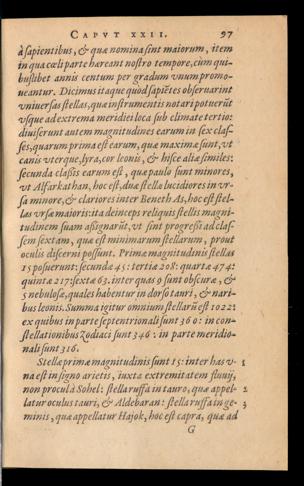 CAPVT XXII. 97
à sapientibus, & quæ nomina sint maiorum, item
in qua cœli parte hæreant nostro tempore, cùm qui-
buslibet annis centum per gradum vnum promo-
ueantur. Dicimus itaque quod sapiētes obseruarint
vniuersas stellas, quæ instrumentis notari potuerūt
vsque ad extrema meridiei loca sub climate tertio:
diuiserunt autem magnitudines earum in sex clas-
ses, quarum prima est earum, quæ maximæ sunt, vt
canis vterque, lyra, cor leonis, & hisce aliæ similes:
secunda classis earum est, quæ paulo sunt minores,
vt Alfarkathan, hoc est, duæ stellæ lucidiores in vr-
sa minore, & clariores inter Beneth As, hoc est stel-
las vrsæ maioris: ita deinceps reliquis stellis magni-
tudinem suam assignarūt, vt sint progressi ad clas-
sem sextam, quæ est minimarum stellarum, prout
oculis discerni possunt. Primæ magnitudinis stellas
15 posuerunt: secundæ 45: tertiæ 208: quartæ 474:
quintæ 217: sextæ 63. inter quas 9 sunt obscuræ, &
5 nebulosæ, quales habentur in dorso tauri, & nari-
bus leonis. Summa igitur omnium stellarū est 1022
ex quibus in parte septentrionali sunt 360: in con-
stellationibus Zodiaci sunt 346: in parte meridio-
nali sunt 316.
Stellæ primæ magnitudinis sunt 15: inter has v- 1
na est in signo arietis, iuxta extremitatem fluuij,
non procul à Sohel: stella ruffa in tauro, quæ appel- 2
latur oculus tauri, & Aldebaran: stella ruffa in ge- 3
minis, quæ appellatur Hajok, hoc est capra, quæ ad
G